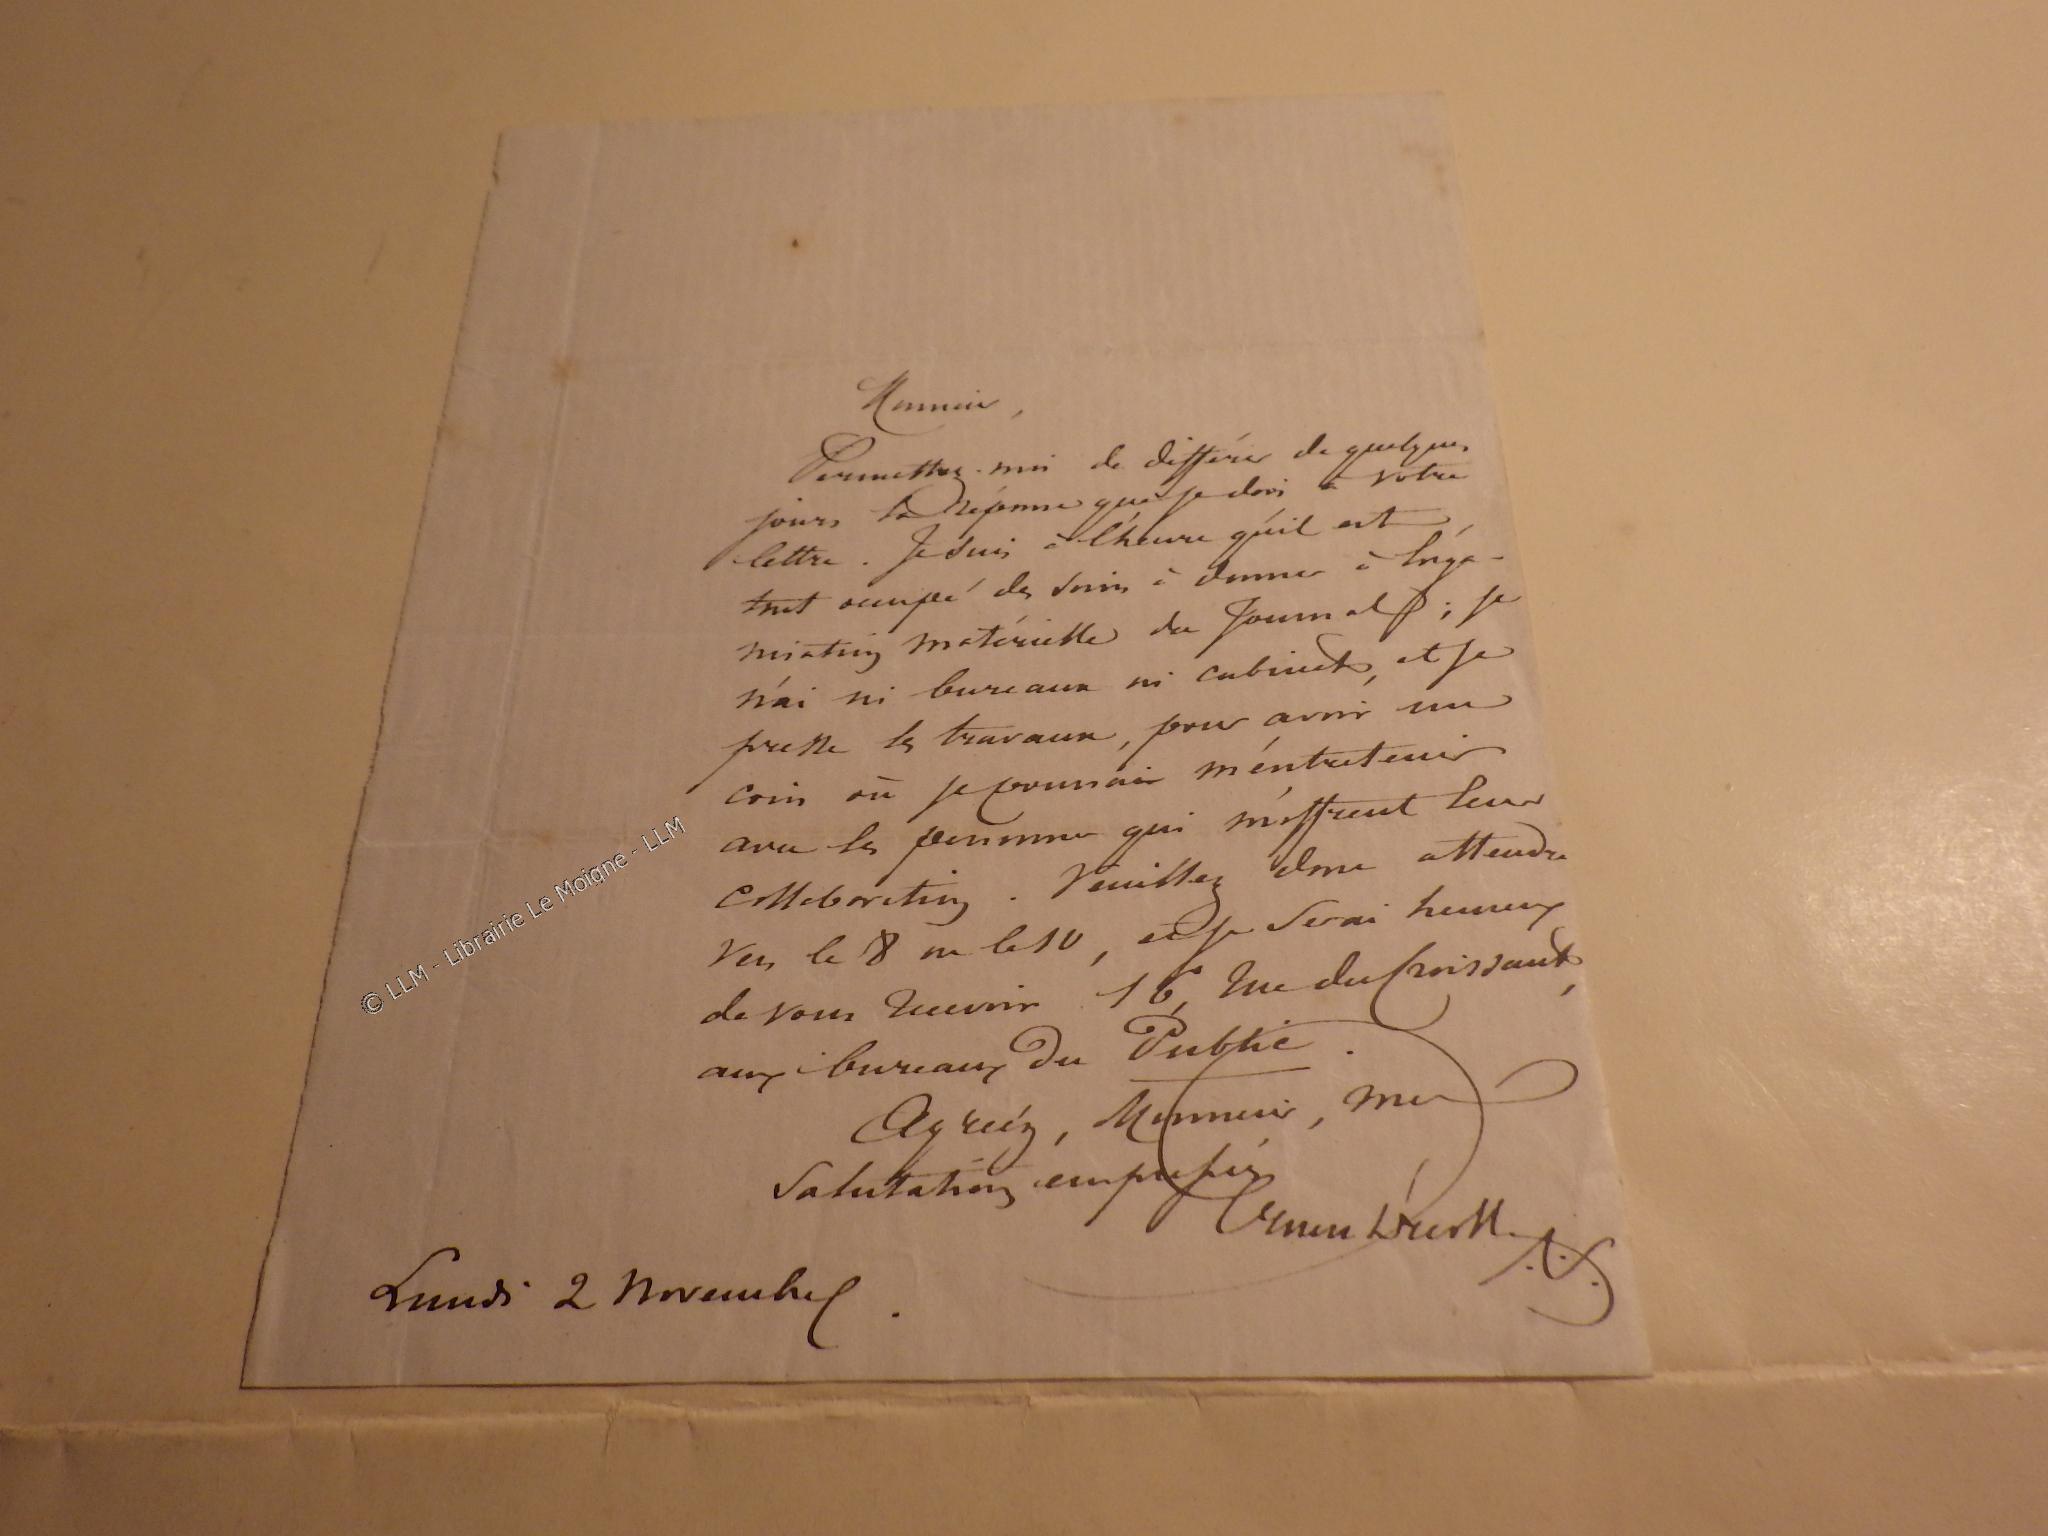 Monsieur,
Permettez-moi de différer de quelques
jours la réponse que je dois à votre
lettre. Je suis à l'heure qu'il est
tout occupé des soins à donner à l'orga-
nisation matérielle du Journal; je
n'ai ni bureaux ni cabinets, et je
presse les travaux, pour avoir un
coin où je pourrais m'entretenir
avec les personnes qui m'offrent leur
collaboration. Veuillez donc attendre
vers le 8 ou le 10, et je serai heureux
de vous recevoir 16, rue du Croissant,
aux bureaux du Public.
Agréez, Monsieur, mes
salutations empressées
Ernest Dréolle
Lundi 2 Novembre.
© LLM - Librairie Le Moigne - LLM